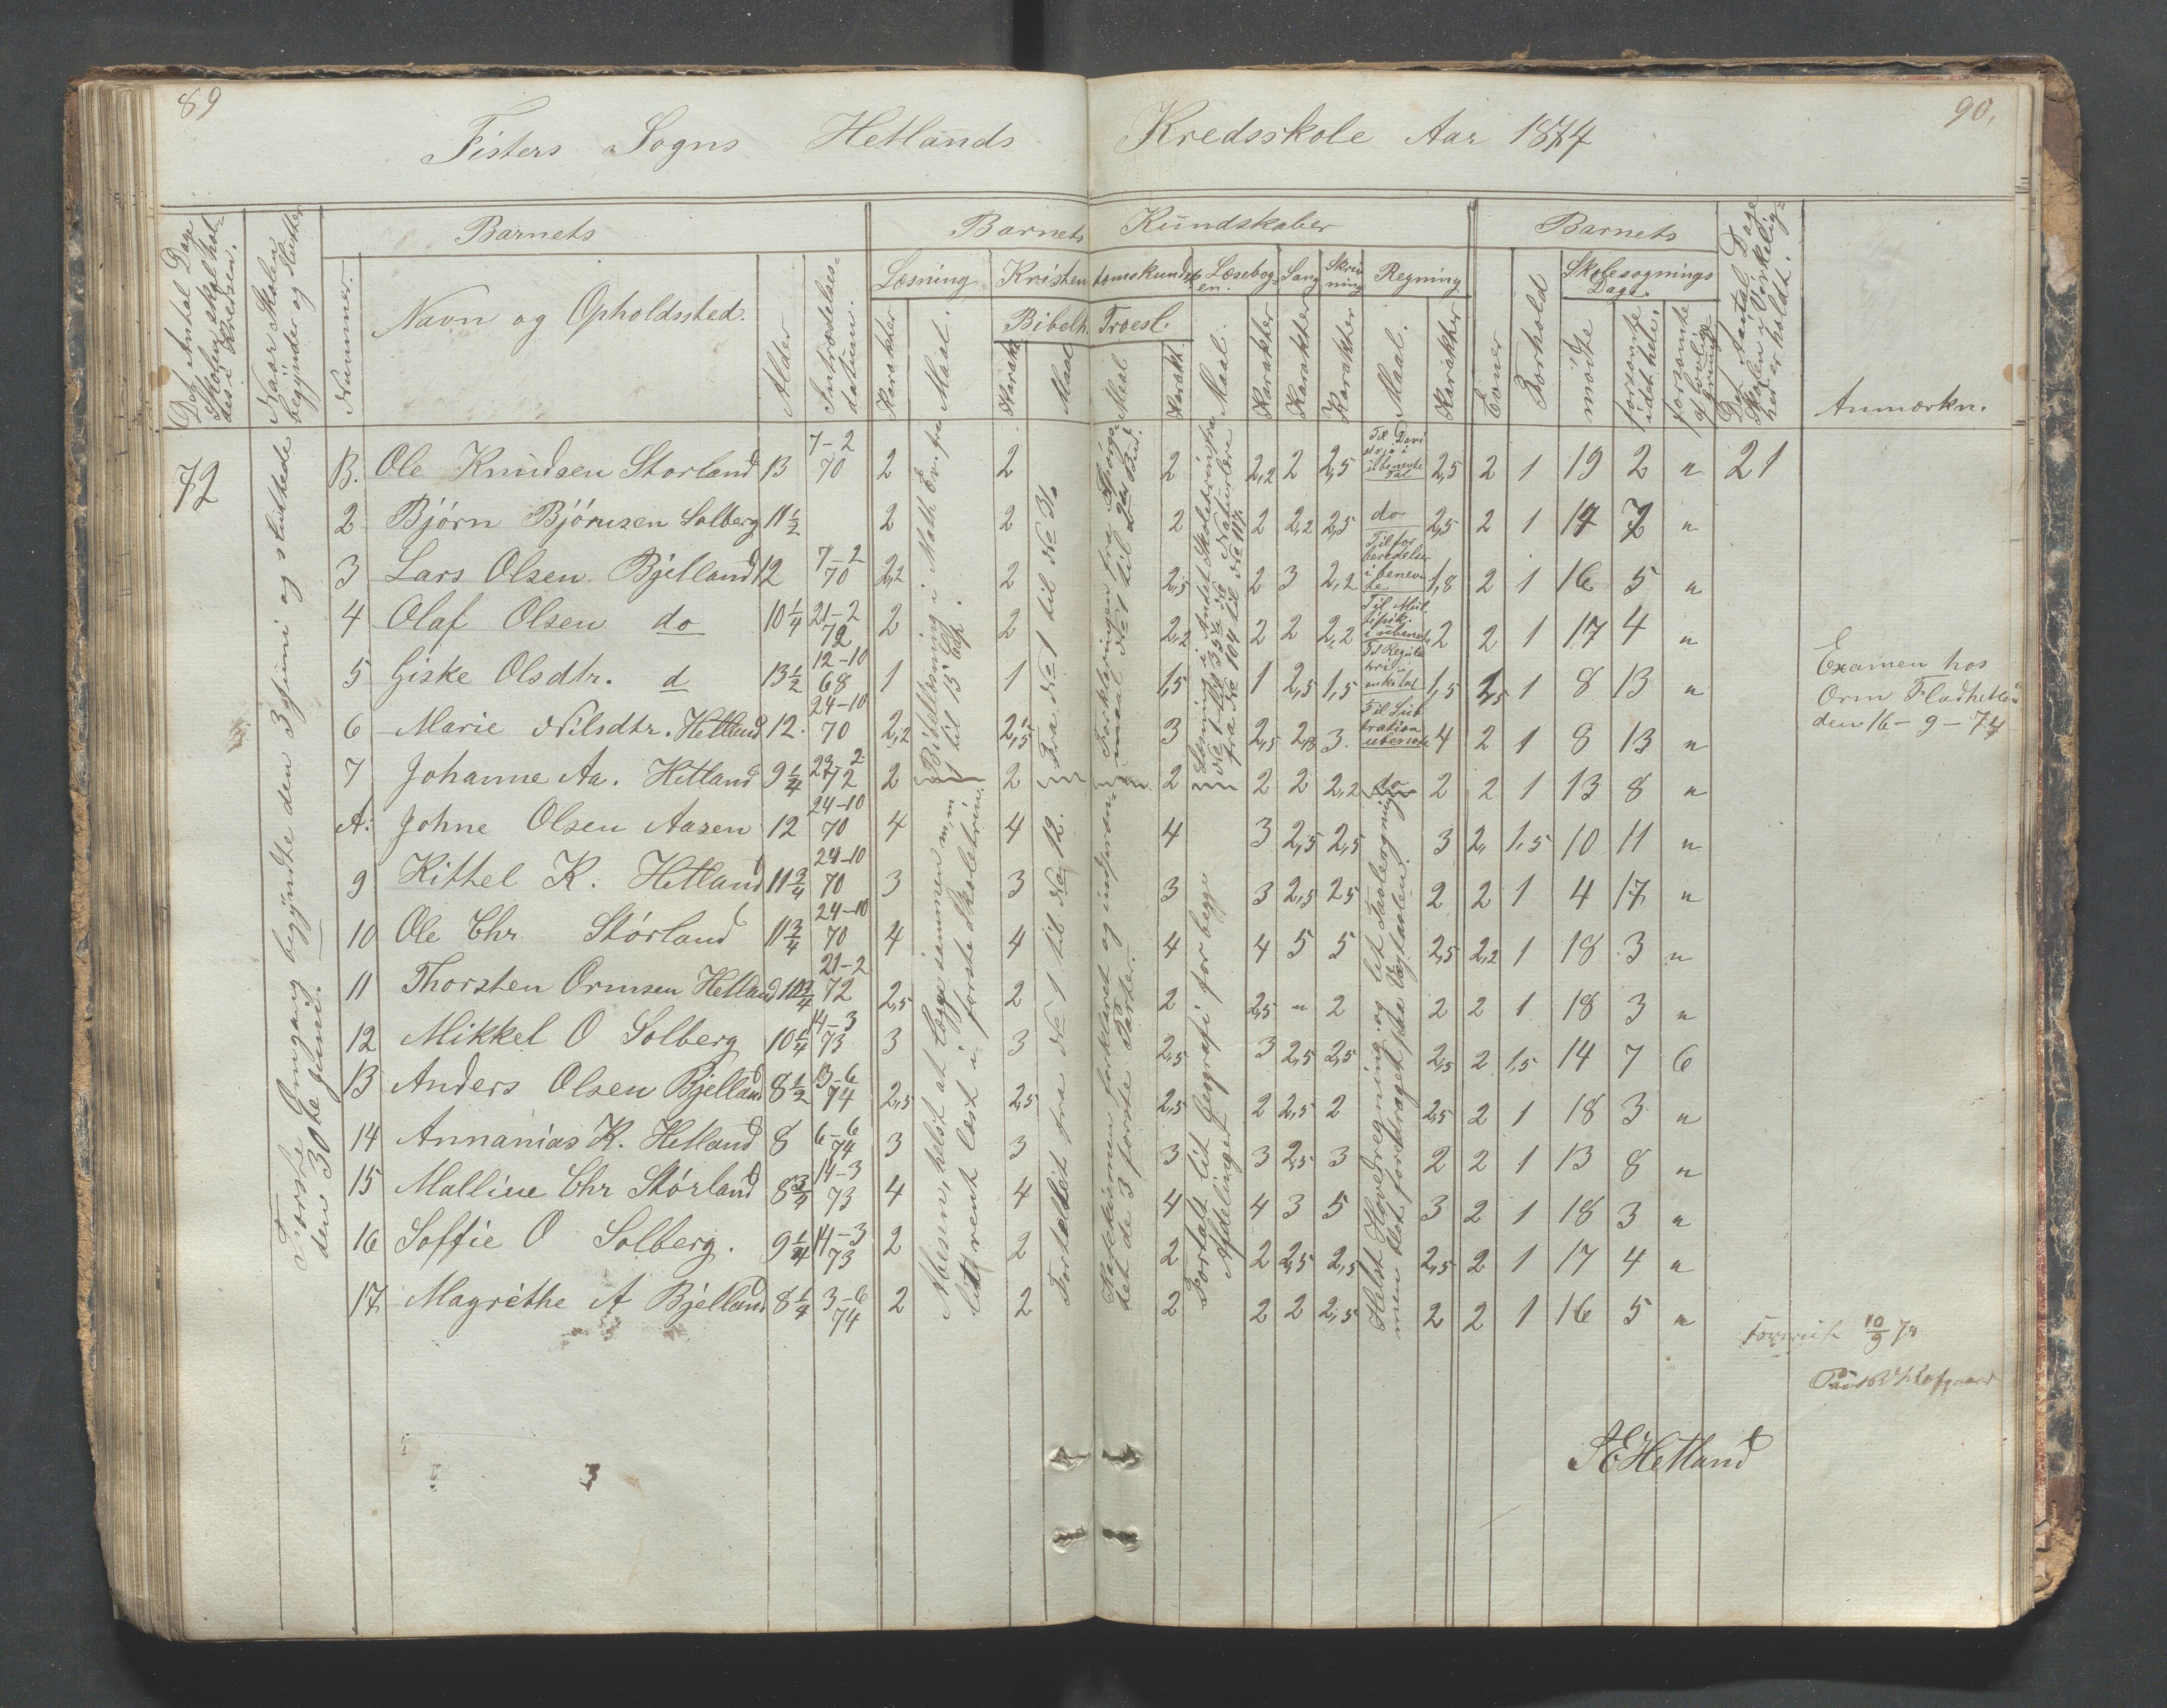 89
90.
Fisters Sogns Hetlands Kredsskole Aar 1874
Det Antal Dage Skolen skal holdes i Kredsen.
Naar Skolen begynder og slutter
Barnets
Nummer.
Navn og Opholdssted.
Alder
Introdelses-datum.
Barnets Kundskaber
Læsning
Karakter
Maal.
Kristendomskundsk
Bibelh.
Karakt
Maal
Troesl.
Maal
Karakt.
Læsebogen.
Maal.
Karakter
Sang
Karakter
Skrivning
Karakter
Regning
Maal.
Karakter
Barnets
Evner
Forhold
Skolesøgnings Dage.
mødte
forsømte i det hele.
forsømte af lovlig Grund
Det Antal Dage Skolen i Virkelighed er holdt.
Anmærkn.
72
Første Omgang begyndte den 3 Juni og sluttede den 30te Juni.
B. Ole Knudsen Storland 13 7-2 70 2 2 2 2,2 2 2,5 2,5 2 1 19 2 " 21
2 Bjørn Bjørnsen Solberg 11 1/2 2 2 2 2 2,2 2,5 do 2,5 2 1 14 7 "
3 Lars Olsen Bjelland 12 7-2 70 2,2 2 2,5 2 3 2,2 1,8 2 1 16 5 "
4 Olaf Olsen do 10 1/4 21-2 72 2 2 2,2 2 2 2,2 2 2 1 17 4 "
5 Giske Olsdtr. d 13 1/2 12-10 68 1 1 1,5 1 2,5 1,5 1,5 1,5 1 8 13 "
6 Marie Nilsdtr. Hetland 12. 24-10 70 2,2 2,5 3 2,5 2,8 3. 4 2 1 8 13 "
7 Johanne Aa. Hetland 9 1/4 23-2 72 2 2 2 2 2 2,2 do 2 2 1 13 8 "
A. Johne Olsen Aasen 12 24-10 70 4 4 4 3 2,5 2,5 3 2, 1,5 10 11 "
9 Kittel K. Hetland 11 3/4 24-10 70 3 3 3 3 2,5 25 2 2 1 4 17 "
10 Ole Chr Stórland 11 3/4 24-10 70 4 4 4 4 5 5 2,5 2,2 1 18 3 "
11 Thorsten Ormsen Hetland 10 3/4 21-2 72 2,5 2 2 2,5 " 2 2 2 1 18 3 "
12 Mikkel O Solberg 10 1/4 14-3 73 3 3 2,5 3 2,5 2,5 2,5 2 1,5 14 7 6
13 Anders Olsen Bjelland 8 1/2 13-6 74 2,5 2,5 2,5 2 2,5 2 2,5 2 1 18 3 "
14 Annanias K. Hetland 8 6-6 74 3 3 3 3 2,5 3 2 2 1 13 8 "
15 Malline Chr Stórland 8 3/4 14-3 73 4 4 4 4 3 5 3 2 1 18 3 "
16 Soffie O Solberg. 9 1/4 14-3 73 2 2 2 2 2,5 2,5 2,5 2 1 17 4 "
17 Magrethe A Bjelland 8 1/4 3-6 74 2 2 2 2 2 2,5 2 2 1 16 5 "
Bibellæsning i Math Ev. fra 1 til 13 Cap.
Abcen, helst at lægge sammen m,m lidt rent læst i første Skoletrin.
Fra No 1 til No 31
Fortaltet fra No 1 til No 12.
Forklaringen fra Spørgsmaal No 1 til 2det Bud.
Katekismen forklaret og indøren det de 3 første Parter.
Læsning i Andet Skoletrin fra No 1 til 35 Naturlære fra No 104 til No 117.
Fortalt lit Geografi for begge Afdelinger
Til Division i ubenevnte Tal
Til forberedelser i benevnte
Til Multiplik. i ubenevnte
Til Regula tri i enkeltal
Til Subtration ubenevnte
Helst Hovedregning og lit Tavleregning men blot foredraget paa Vegtavlen.
Examen hos
Orm Fladhetland
den 16-9-74
10/9 74
SEHetland
3